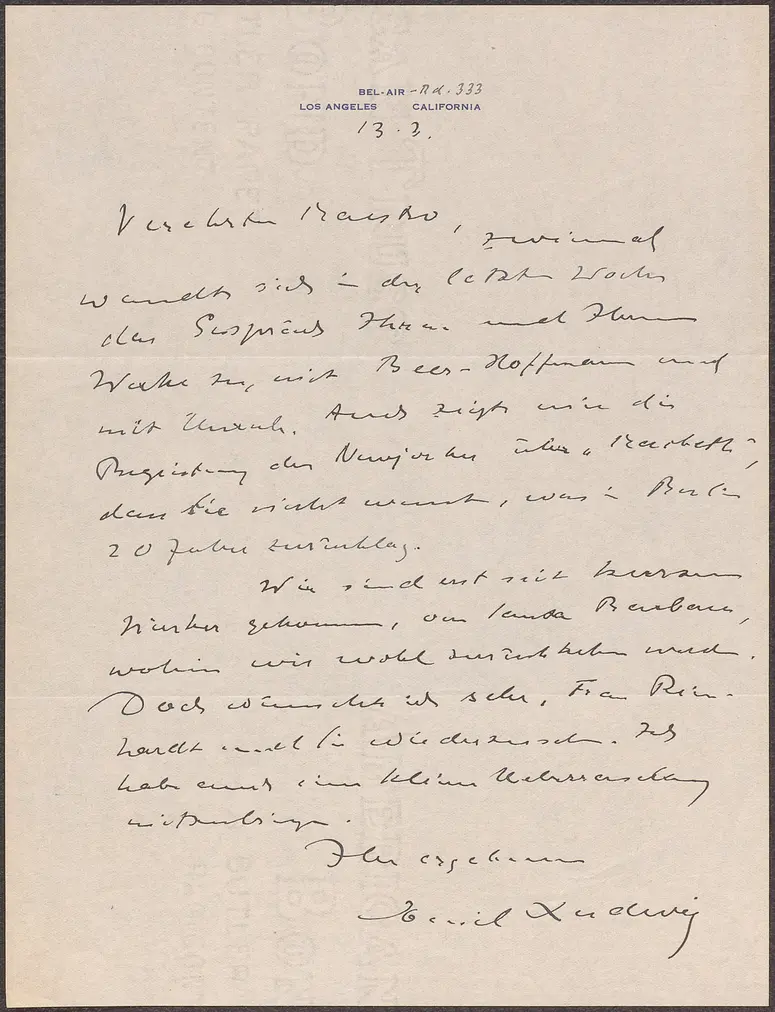 BEL-AIR - Rd. 333
LOS ANGELES CALIFORNIA
13. 3.
Verehrter Maestro, zweimal
wandte sich in der letzten Woche
das Gespräch Ihnen und Ihrem
Werke zu, mit Beer-Hoffmann und
mit Unruh. Auch zeigte mir die
Begeisterung der Newyorker über „Macbeth",
dass Sie nicht warnt, was in Berlin
20 Jahre zurücklag.
Wir sind erst seit kurzem
hierher gekommen, von Santa Barbara,
wohin wir wohl zurückkehren werden.
Doch wünschte ich sehr, Frau Rein-
hardt und Sie wiederzusehen. Ich
habe auch eine kleine Ueberraschung
mitzubringen.
Ihr ergebener
Emil Ludwig